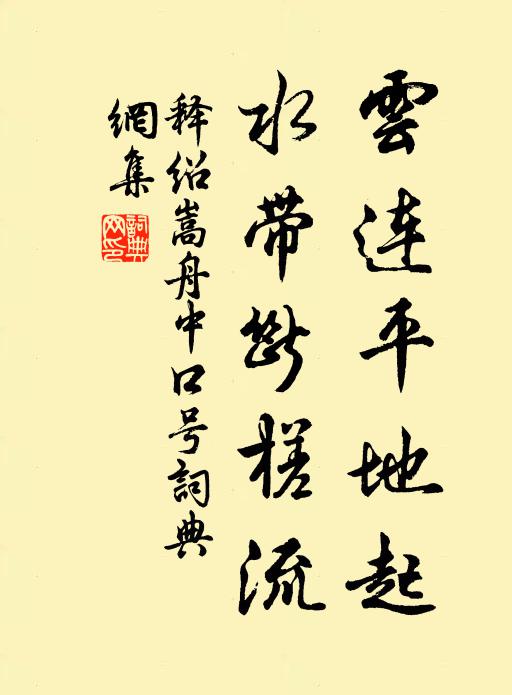 雲連平地起
水帶斷槎流
释绍嵩舟中口号詞典
網集
詞典
网印